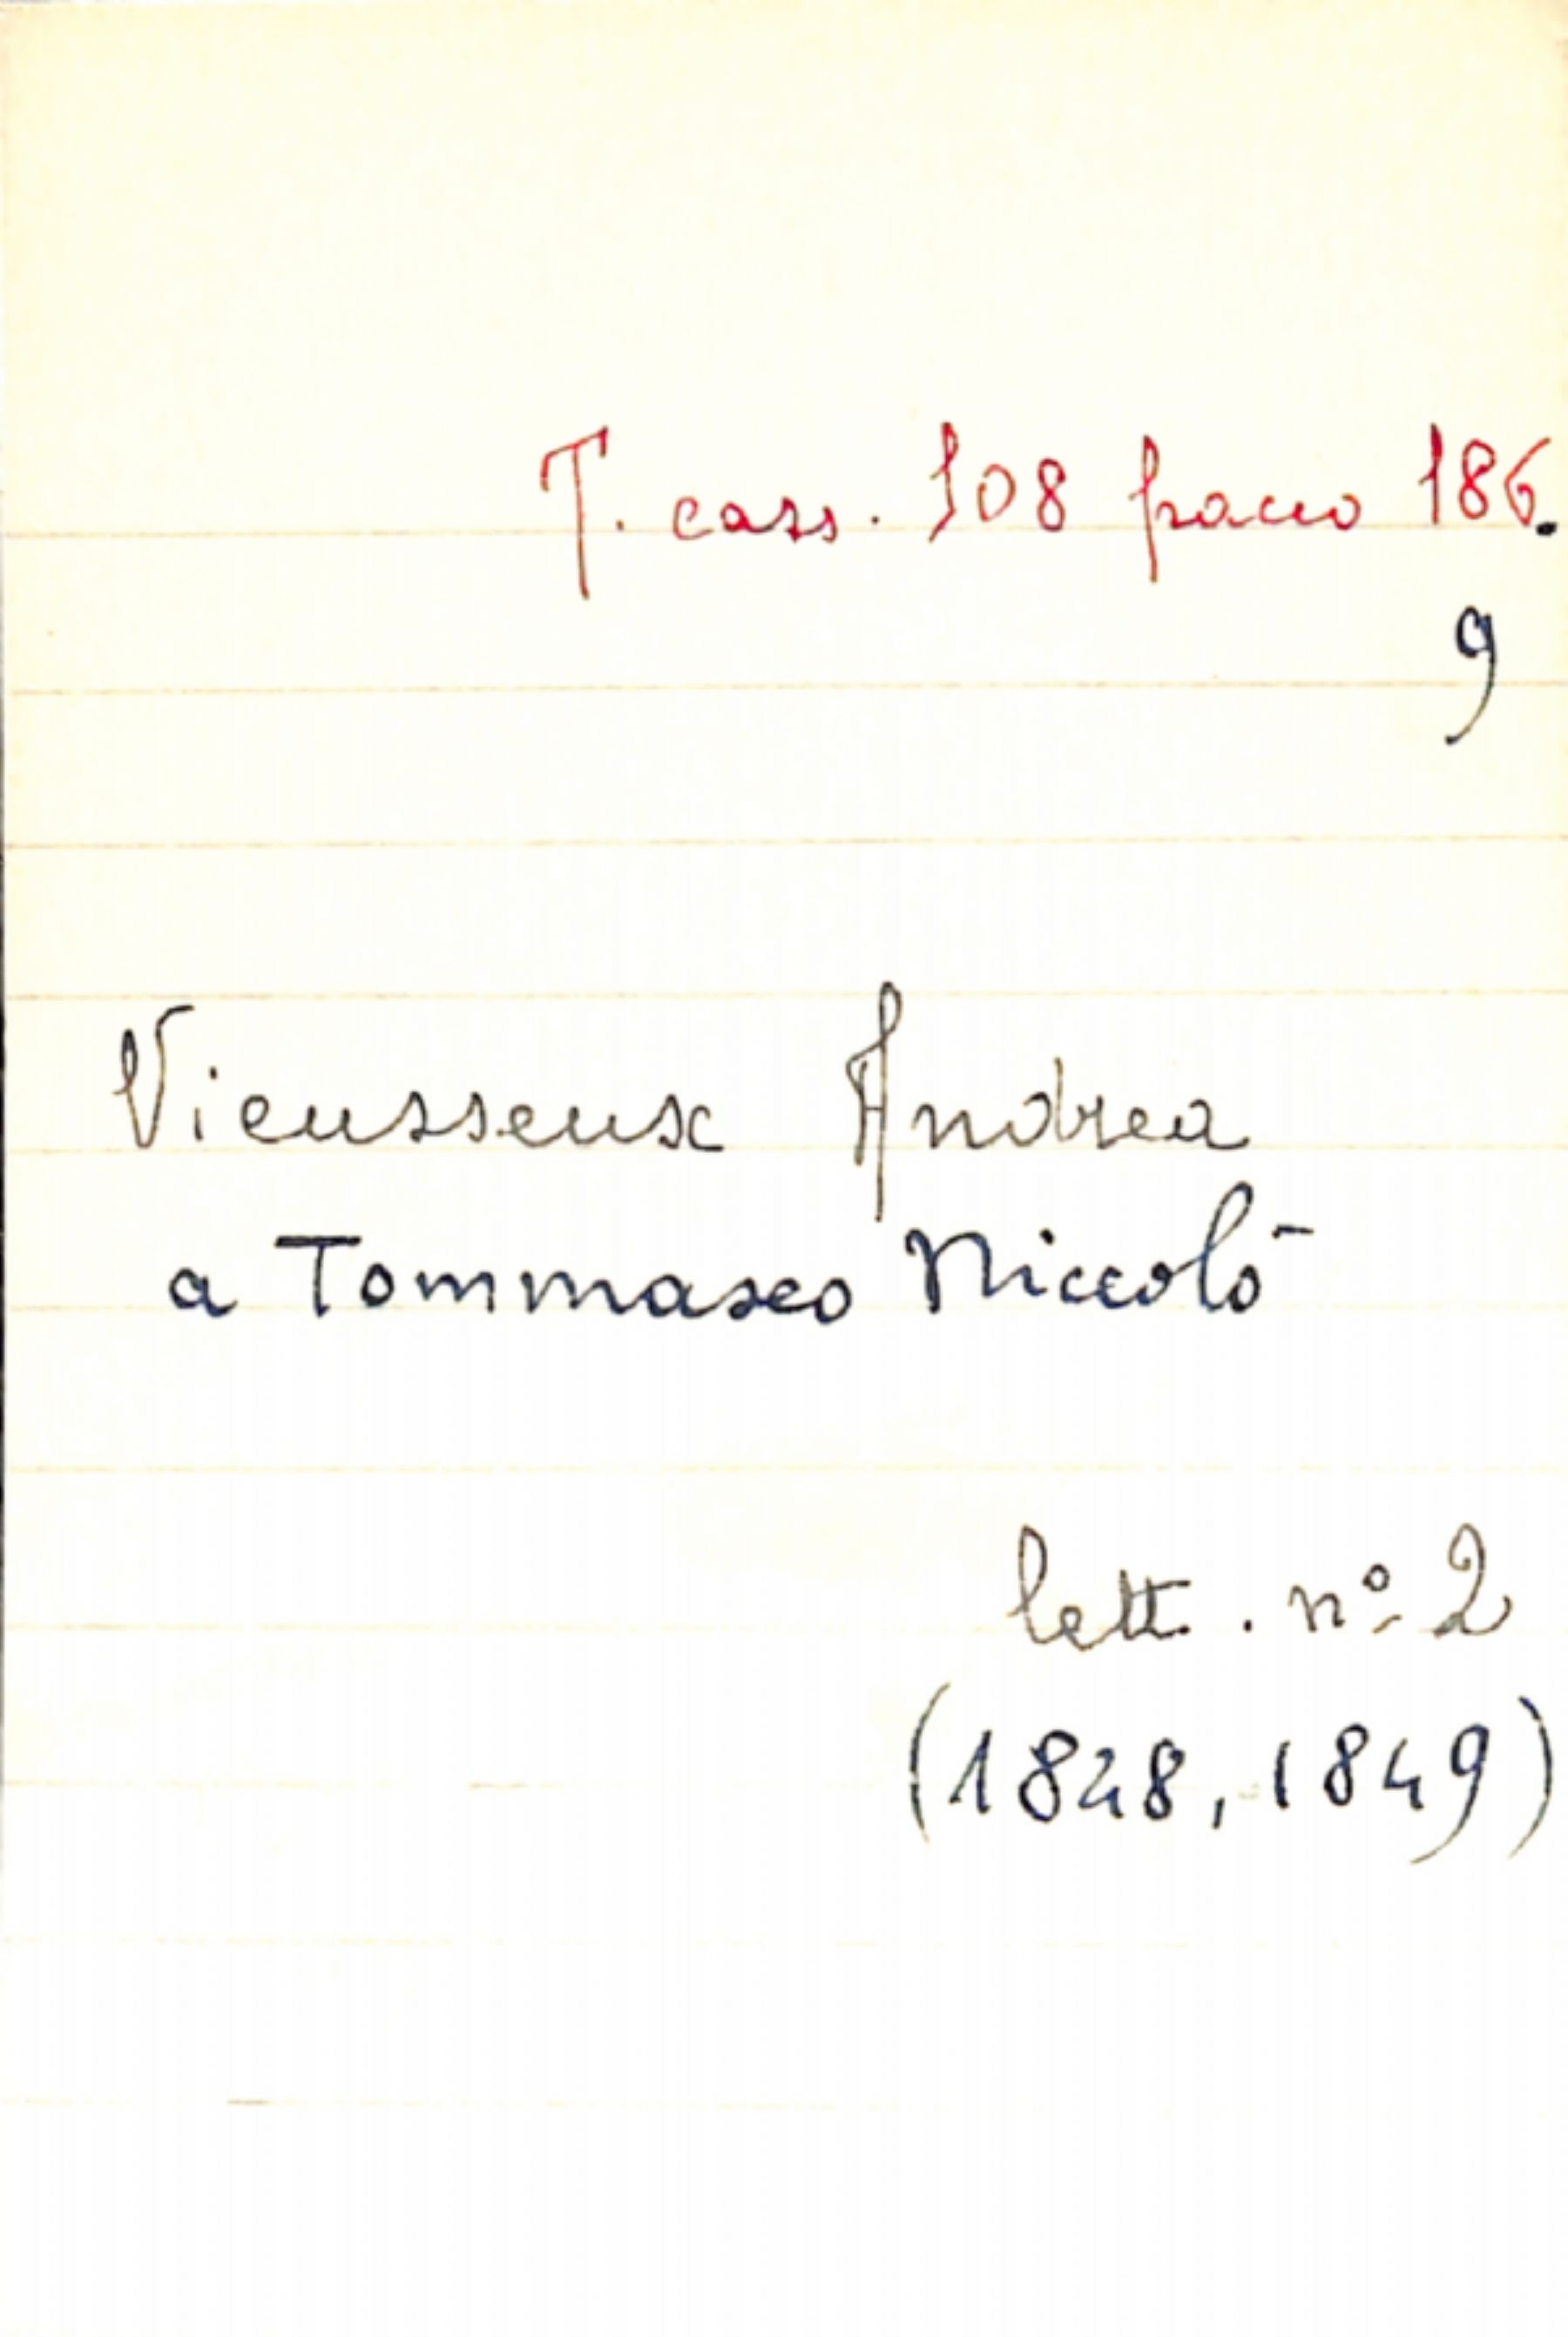 T. cass. 108 pacco 186.
9
Vieusseux Andrea
a Tommaseo Niccolò
lett. nº 2
(1828, 1849)